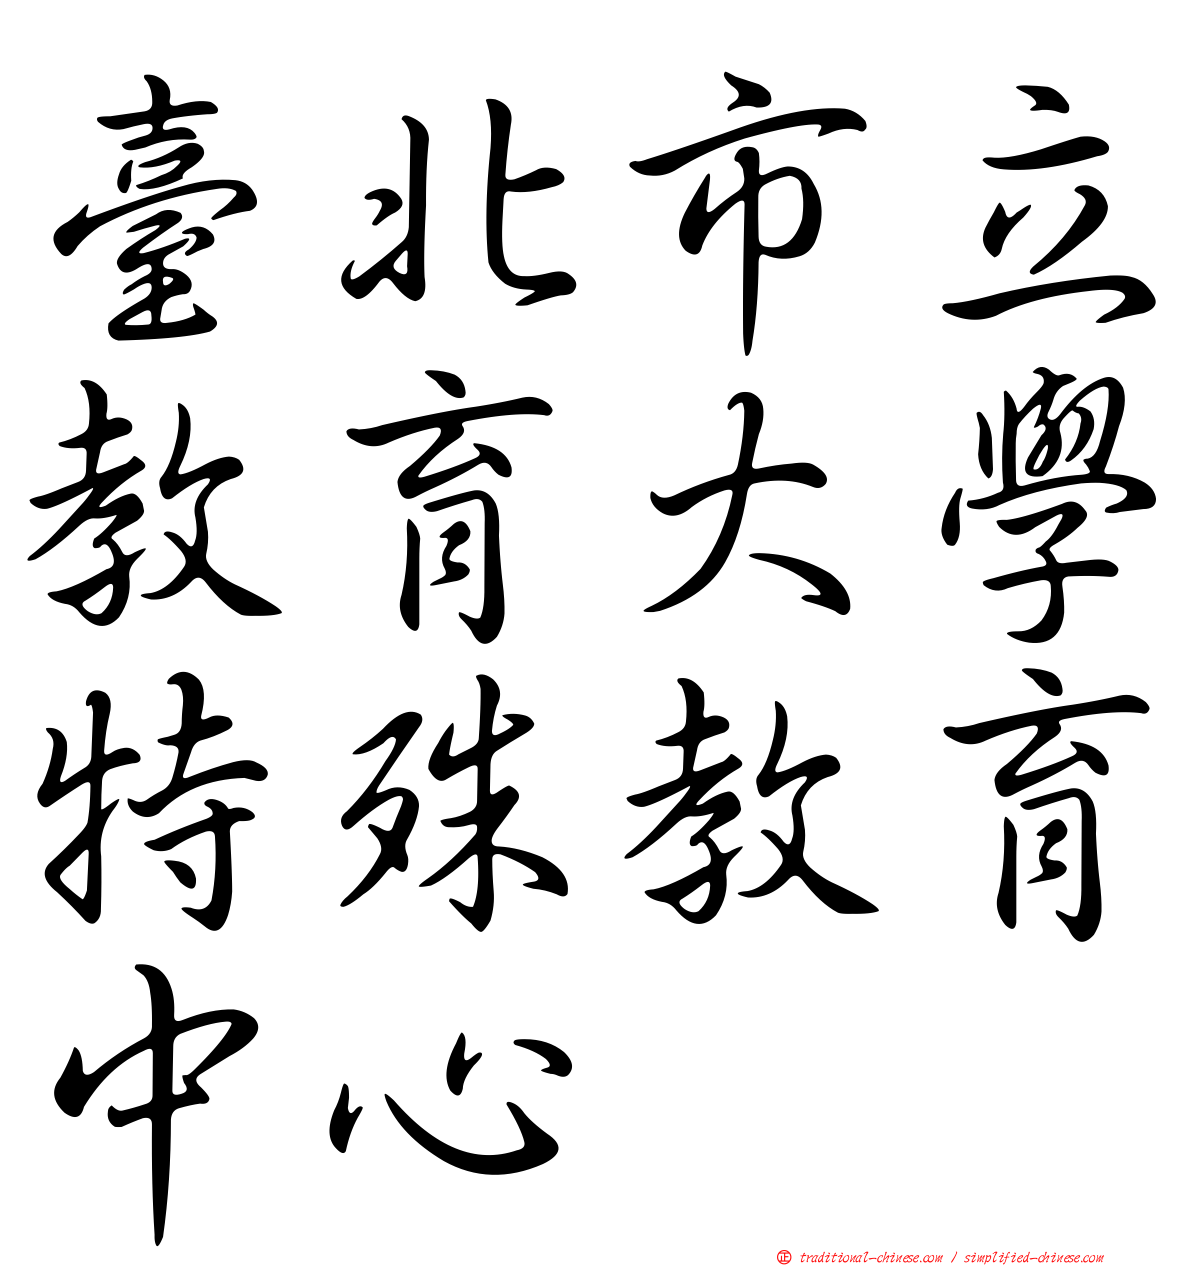 臺北市立
教育大學
特殊教育
中心
㊣ traditional-chinese.com / simplified-chinese.com